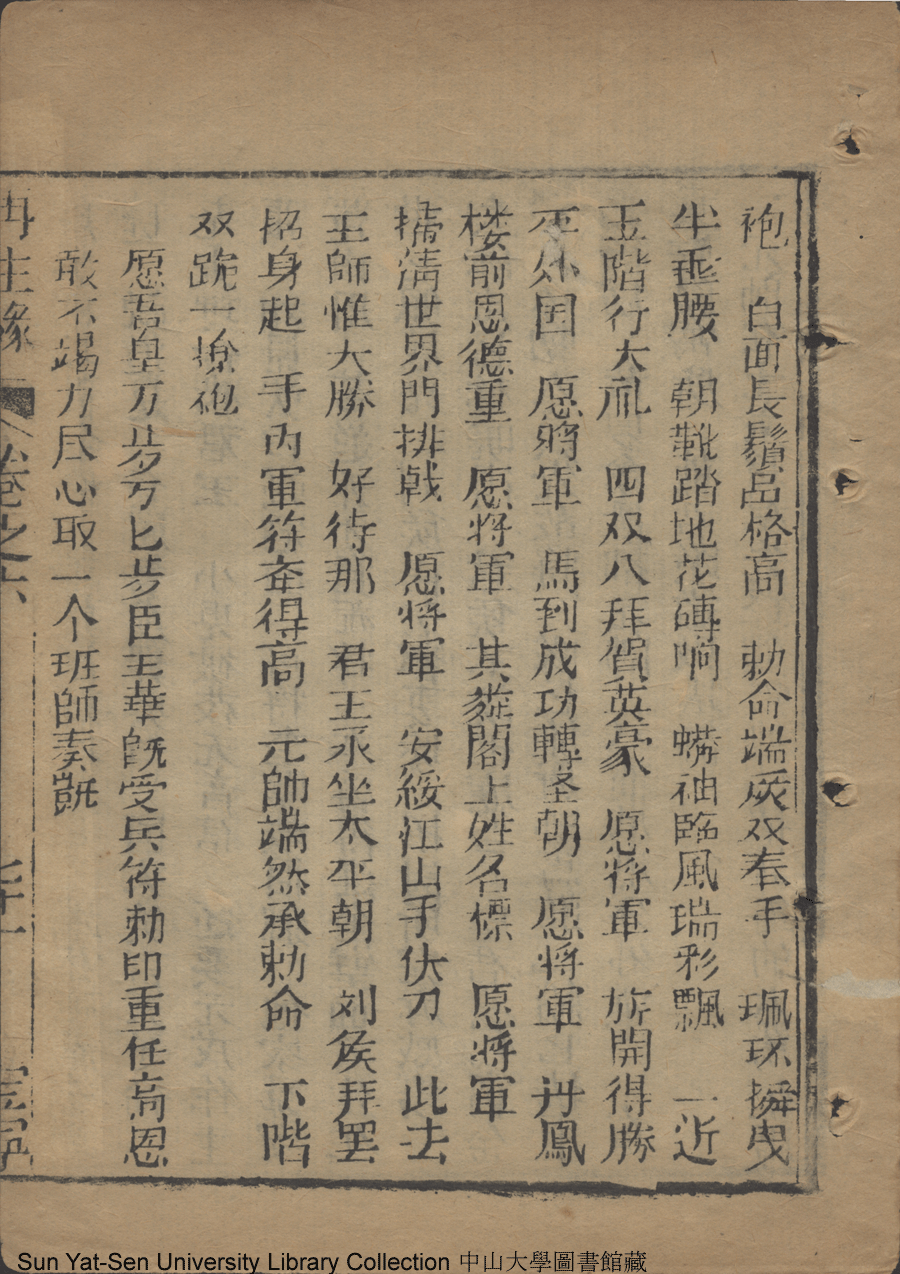 袍　白面長鬚品格高　勅命端灰双春手　珮环搀曳
半垂腰　朝靴踏地花磚响　蟒袖臨風瑞彩飄　一近
玉階行大礼　四双八拜賀英豪　愿将軍　旂開得勝
平外国　愿將軍　馬到成功轉圣朝　愿将軍　丹鳳
楼前恩德重　愿将軍　其麟閣上姓名標　愿將軍
掃清世界門排戟　愿将軍　安綏江山手伏刀　此去
王師惟大勝　好待那　君王永坐太平朝　刘侯拜罢
招身起　手内軍符奎得高　元帥端然承勅命　下階
双跪一撩袍
愿吾皇万歩万匕歩臣王華既受兵符勅印重任高恩
敢不竭力尽心取一个班師奏凱
再生緣　卷之六
Sun Yat-Sen University Library Collection 中山大學圖書館藏